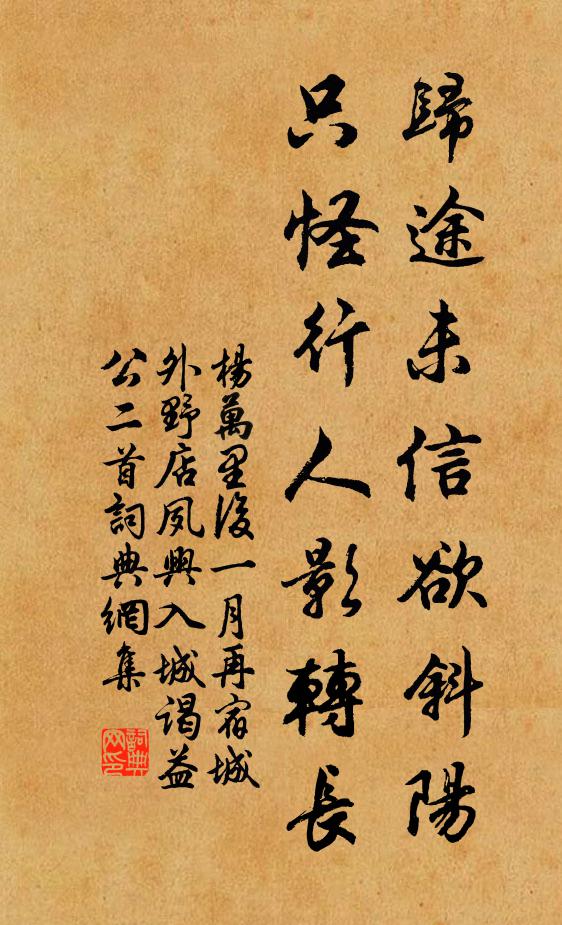 歸途未信欲斜陽
只怪行人影轉長
楊萬里後一月再宿城
外野店夙興入城謁益
公二首詞典網集
詞典网印